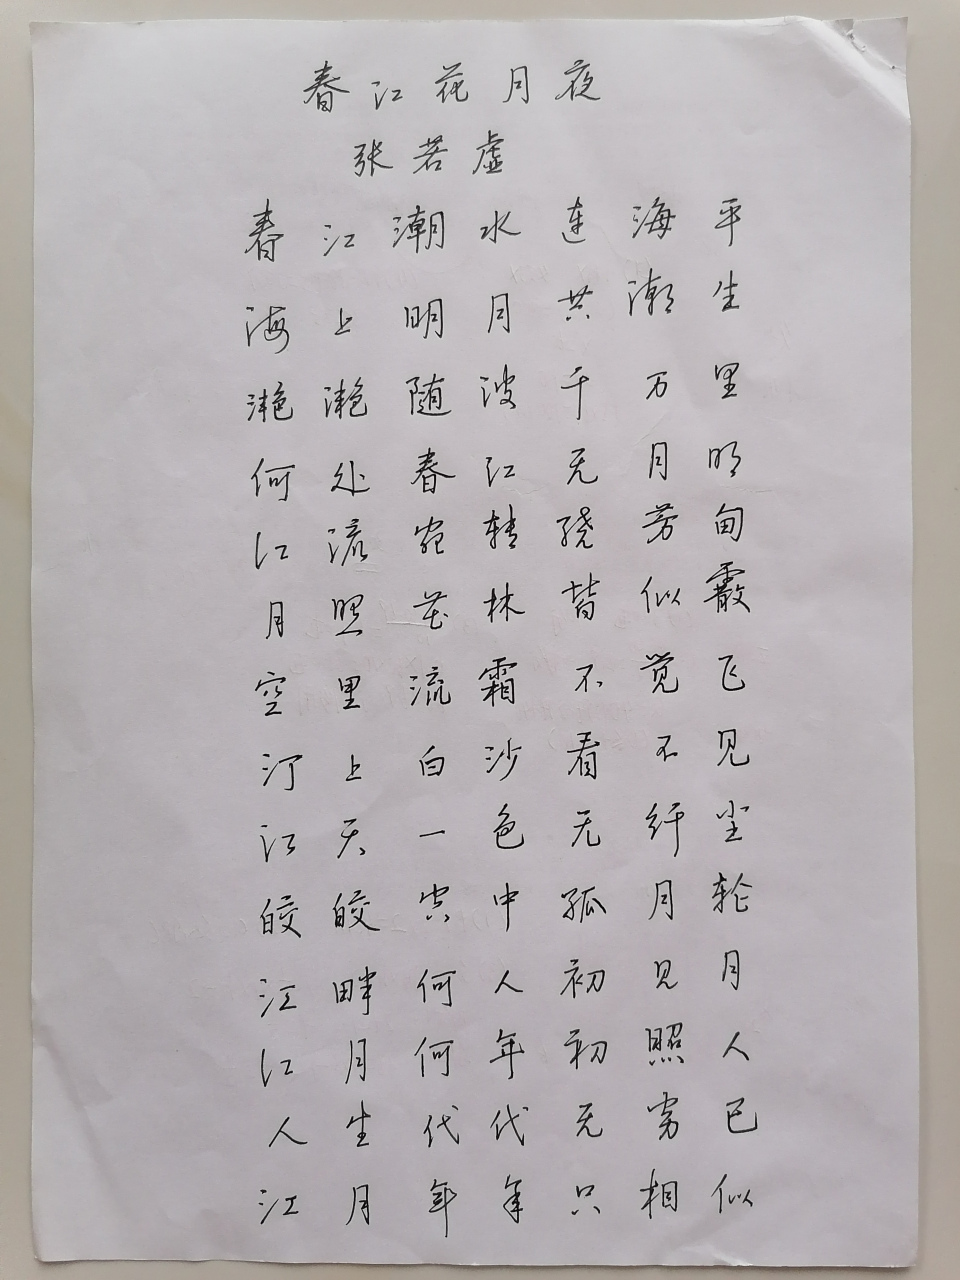 春江花月夜
张若虚
春江潮水连海平
海上明月共潮生
滟滟随波千万里
何处春江无月明
江流宛转绕芳甸
月照花林皆似霰
空里流霜不觉飞
汀上白沙看不见
江天一色无纤尘
皎皎空中孤月轮
江畔何人初见月
江月何年初照人
人生代代无穷已
江月年年只相似